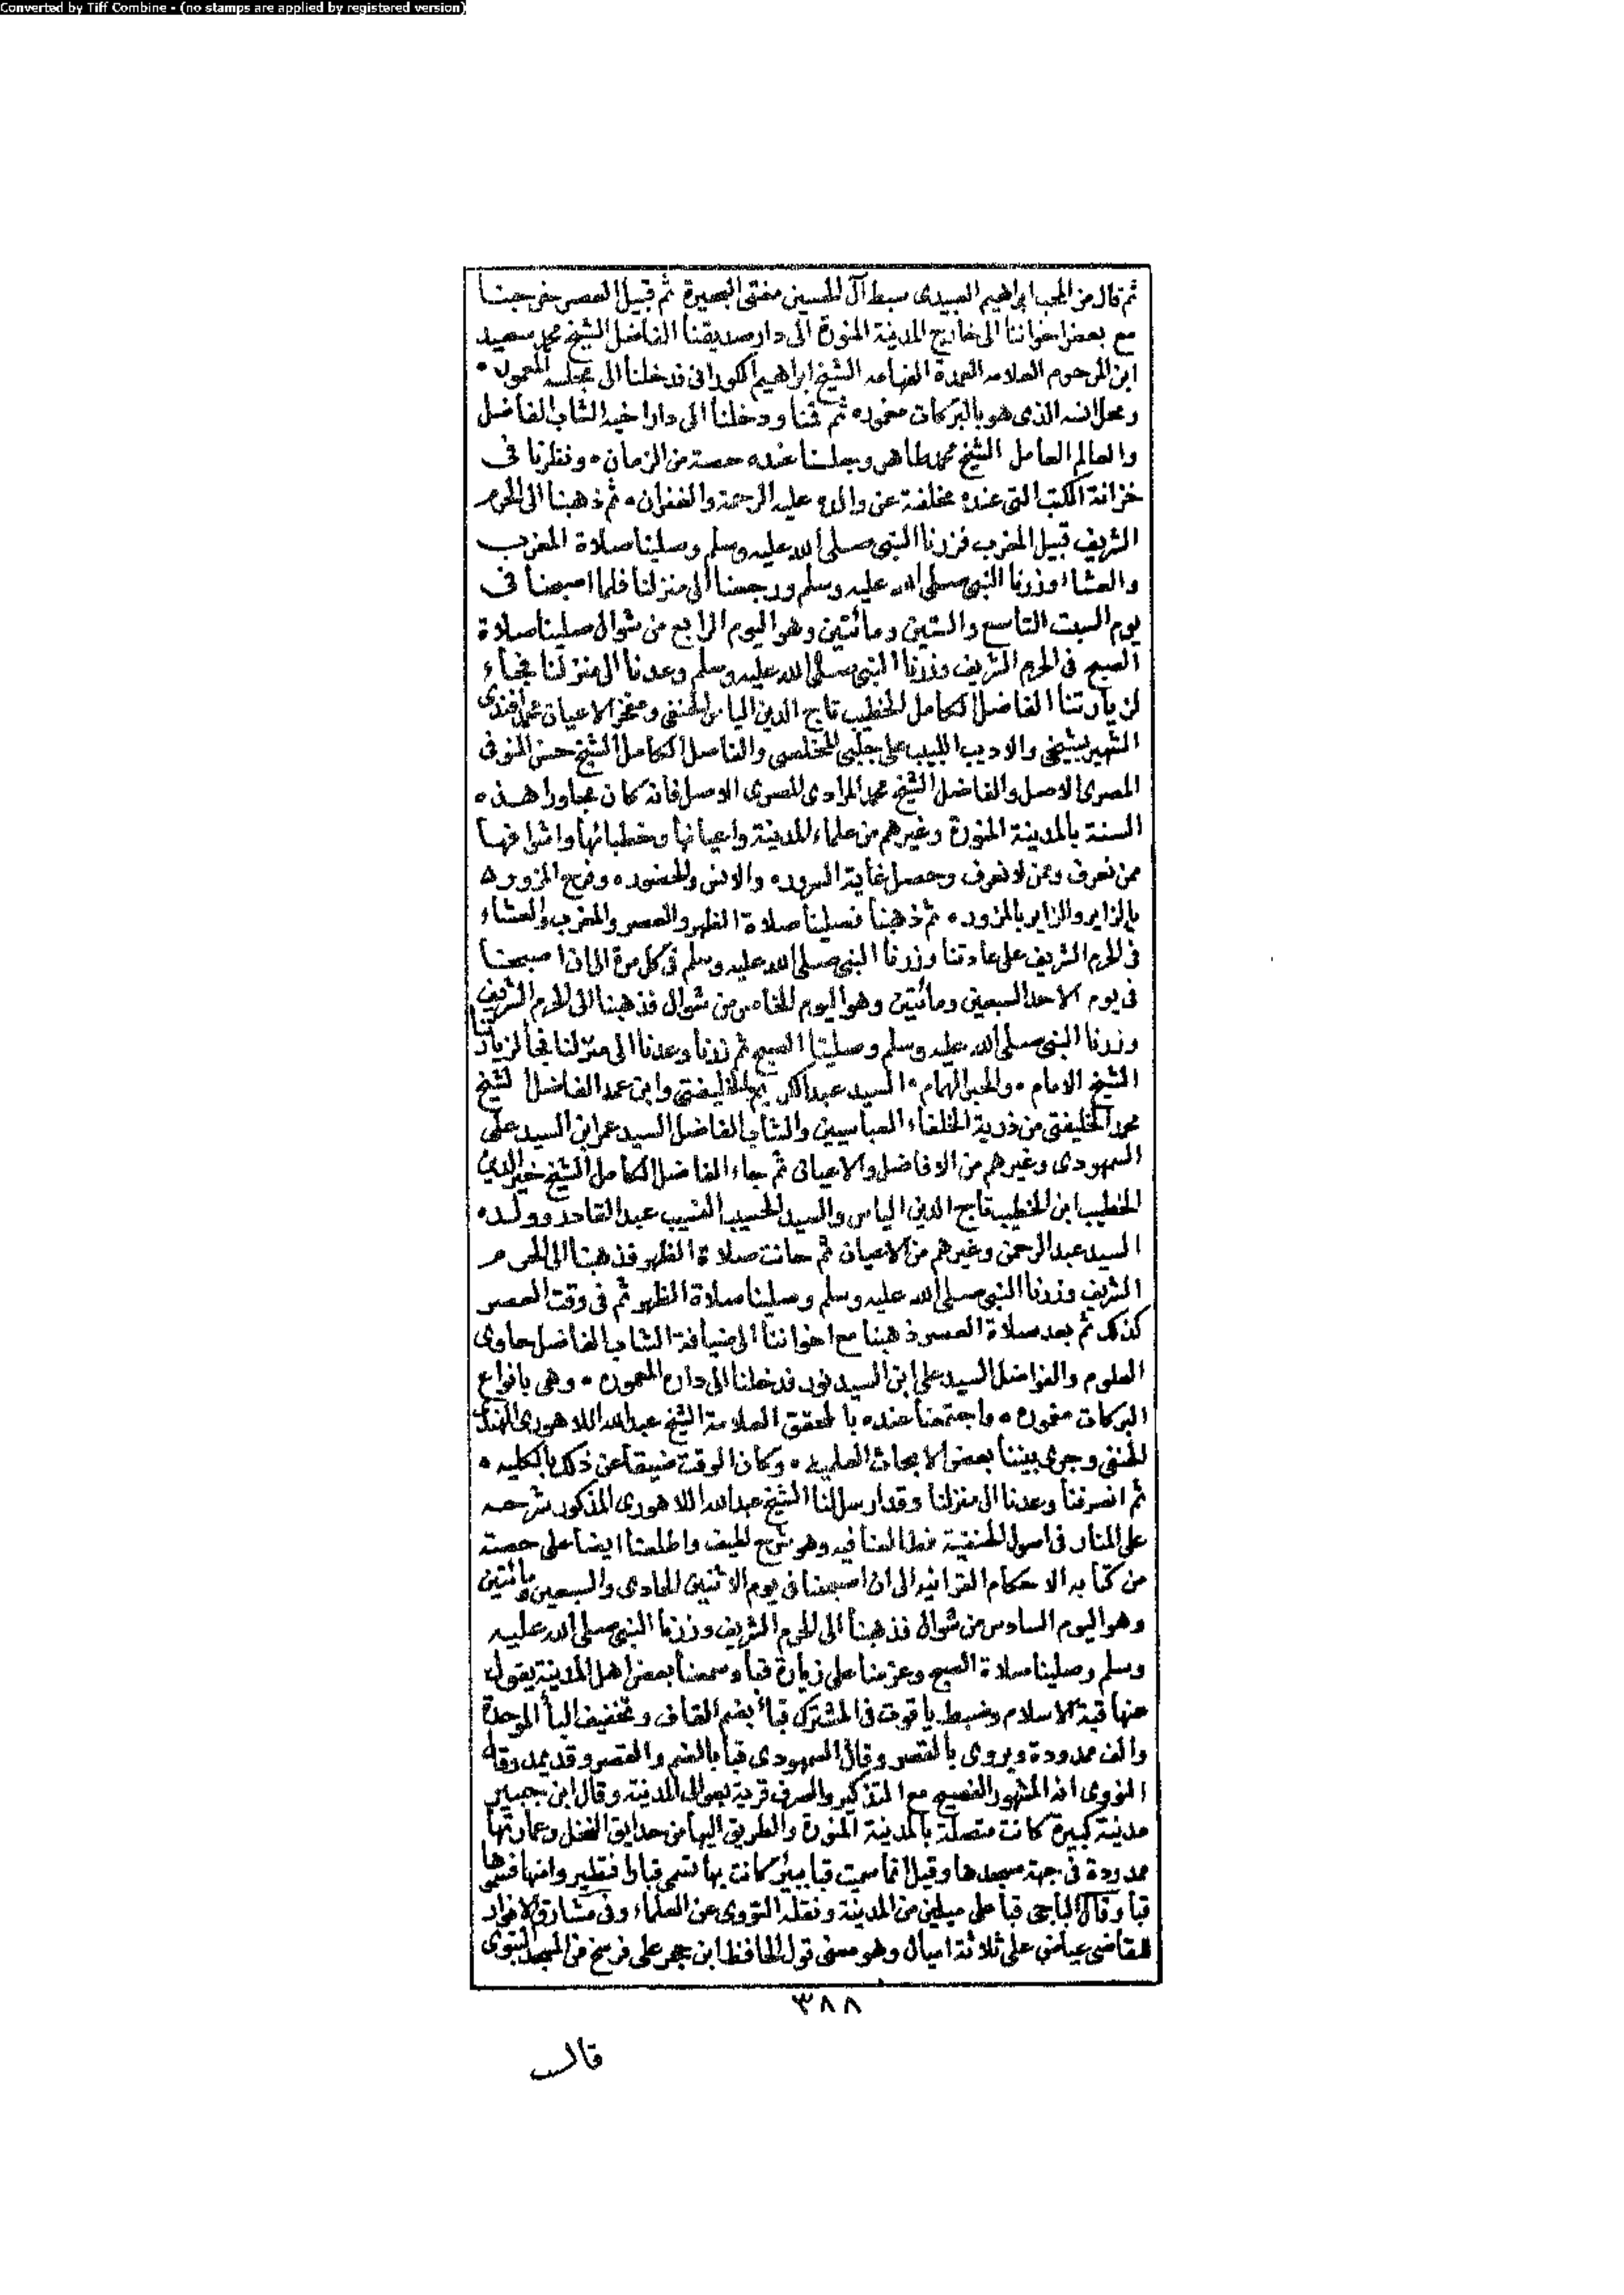 Converted by Tiff Combine - (no stamps are applied by registered version)
ثم قال من المحب ابراهيم العبيدى سبط آل الحسين مفتى البحيرة ثم قبيل العصر خرجنا
مع بعض اخواننا الى خارج المدينة المنورة الى دار صديقنا الفاضل الشيخ محمد سعيد
ابن المرحوم العلامه العمدة الفهامه الشيخ ابراهيم الكورانى فدخلنا الى مجلسه المعمور
ومحل انسه الذى هو بالبركات مغمور ثم قمنا ودخلنا الى دار اخيه الشاب الفاضل
والعالم العامل الشيخ محمد طاهر وجلسنا عنده حصة من الزمان ونظرنا فى
خزانة الكتب التى عنده مخلفة عن والده عليه الرحمة والغفران ثم ذهبنا الى الحرم
الشريف قبيل المغرب فزرنا النبى صلى الله عليه وسلم وصلينا صلاة المغرب
والعشاء وزرنا النبى صلى الله عليه وسلم ورجعنا الى منزلنا فلما اصبحنا فى
يوم السبت التاسع والستين ومائتين وهو اليوم الرابع من شوال صلينا صلاة
الصبح فى الحرم الشريف وزرنا النبى صلى الله عليه وسلم وعدنا الى منزلنا فجاء
لزيارتنا الفاضل الكامل الخطيب تاج الدين الياس الحنفى ومفخر الاعيان محمد افندى
الشهير بشيخى والاديب اللبيب على جلبى المخلصى والفاضل الكامل الشيخ حسن المنوفى
المصرى الاصل والفاضل الشيخ محمد المرادى المصرى الاصل فانه كان مجاورا هذه
السنة بالمدينة المنورة وغيرهم من علماء المدينة واعيانها وخطبائها واشرافها
ممن نعرف وممن لا نعرف وحصل غاية السرور والانس والحضور وفرح المزور
بالزاير والزاير بالمزور ثم ذهبنا فصلينا صلاة الظهر والعصر والمغرب والعشاء
فى الحرم الشريف على عادتنا وزرنا النبى صلى الله عليه وسلم فى كل مرة الى ان اصبحنا
فى يوم الاحد السبعين ومائتين وهو اليوم الخامس من شوال فذهبنا الى الحرم الشريف
وزرنا النبى صلى الله عليه وسلم وصلينا الصبح ثم زرنا وعدنا الى منزلنا فجاء لزيارتنا
الشيخ الامام والحبر الهمام السيد عبد الكريم الخليفتى وابن عمه الفاضل الشيخ
محمد الخليفتى من ذرية الخلفاء العباسيين والشاب الفاضل السيد عمر ابن السيد على
السمهودى وغيرهم من الافاضل والاعيان ثم جاء الفاضل الكامل الشيخ خير الدين
الخطيب ابن الخطيب تاج الدين الياس والسيد الحسيب النسيب عبد القادر وولده
السيد عبد الرحمن وغيرهم من الاعيان ثم حانت صلاة الظهر فذهبنا الى الحرم
الشريف وزرنا النبى صلى الله عليه وسلم وصلينا صلاة الظهر ثم فى وقت العصر
كذلك ثم بعد صلاة العصر ذهبنا مع اخواننا الى ضيافة الشاب الفاضل حاوى
العلوم والفواضل السيد على ابن السيد نور فدخلنا الى داره المعموره وهى بانواع
البركات مغموره واجتمعنا عنده بالمحقق العلامة الشيخ عبد الله اللاهورى الهندى
الحنفى وجرى بيننا بعض الابحاث العلميه وكان الوقت ضيقا عن ذلك بالكليه
ثم انصرفنا وعدنا الى منزلنا وقد ارسل لنا الشيخ عبد الله اللاهورى المذكور شرحه
على المنار فى اصول الحنفية فطالعنا فيه وهو شرح لطيف واطلعنا ايضا على حصة
من كتابه الاحكام القرانيه الى ان اصبحنا فى يوم الاثنين الحادى والسبعين ومائتين
وهو اليوم السادس من شوال فذهبنا الى الحرم الشريف وزرنا النبى صلى الله عليه
وسلم وصلينا صلاة الصبح وعزمنا على زيارة قبا وسمعنا بعض اهل المدينة يقول
عنها قبة الاسلام وضبط ياقوت فى المشترك قباء بضم القاف وتخفيف الباء الموحدة
والف ممدودة ويروى بالقصر وقال السمهودى قبا بالضم والقصر وقد يمد وقال
النووى انه المشهور الفصيح مع التذكير والصرف قرية بعوالى المدينة وقال ابن جبير
مدينة كبيرة كانت متصلة بالمدينة المنورة والطريق اليها من حدايق النخل وعمارتها
ممدودة فى جهة مسجدها وقيل انما سميت قبا ببئر كانت بها تسمى قبار فتطيروا منها فسموها
قبا وقال الباجى قبا على ميلين من المدينة ونقله النووى عن العلماء وفى مشارق الانوار
للقاضى عياض على ثلاثة اميال وهو معنى قول الحافظ ابن حجر على فرسخ من المسجد النبوى
٣٨٨
قال